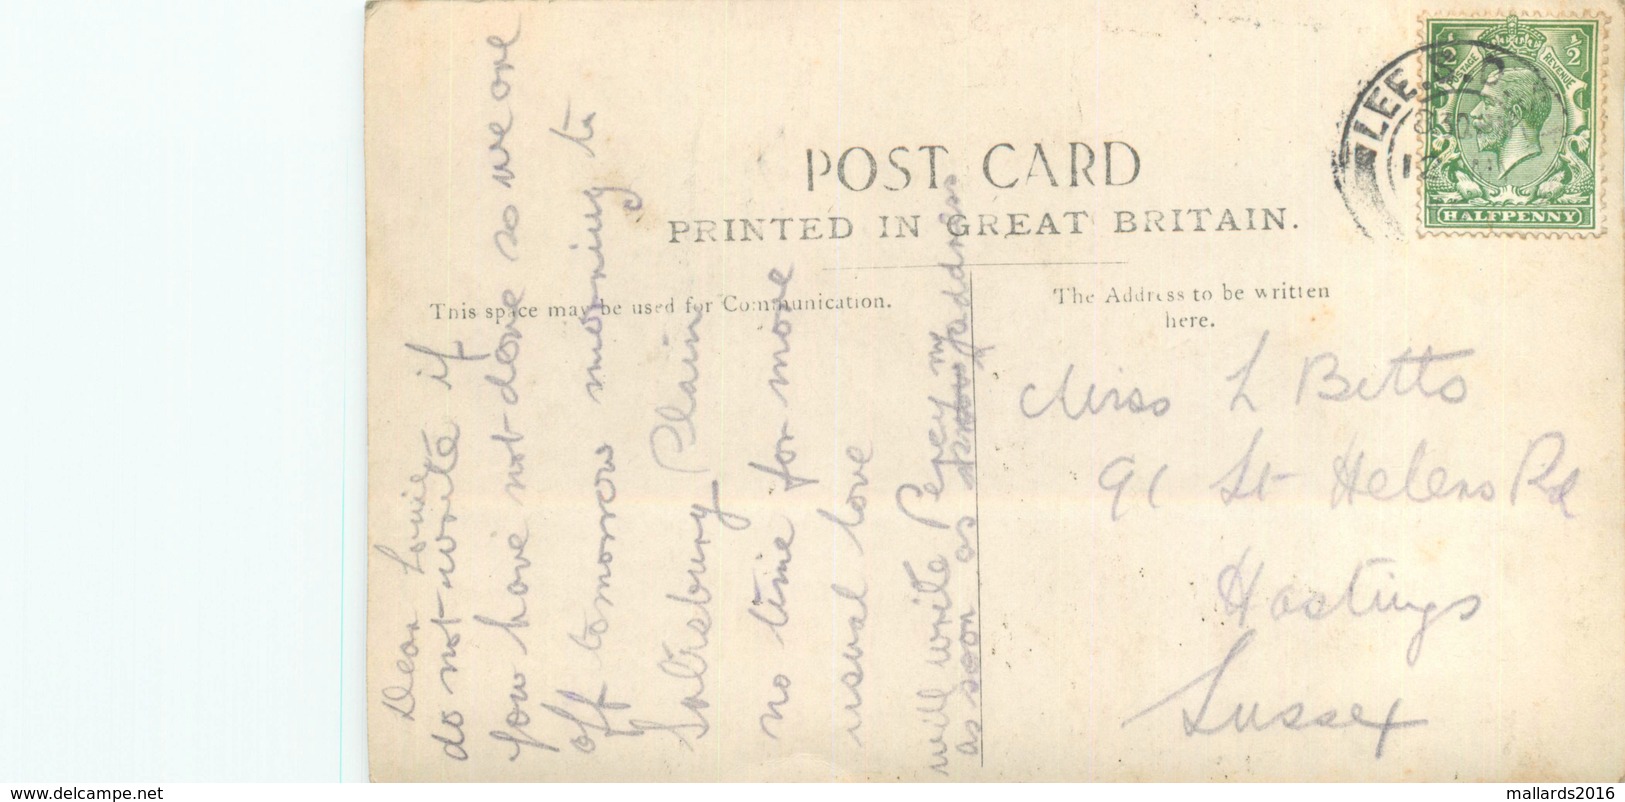 POST CARD
PRINTED IN GREAT BRITAIN.
This space may be used for Communication.
The Address to be written
here.
Dear Louie
do not write if
you have not done so we are
off tomorrow morning to
Salisbury Plain
no time for more
usual love
Percy
will write
as soon as know my address
Miss L Betts
91 St Helens Rd
Hastings
Sussex
LEEDS
½ ½
POSTAGE REVENUE
HALFPENNY
www.delcampe.net
mallards2016